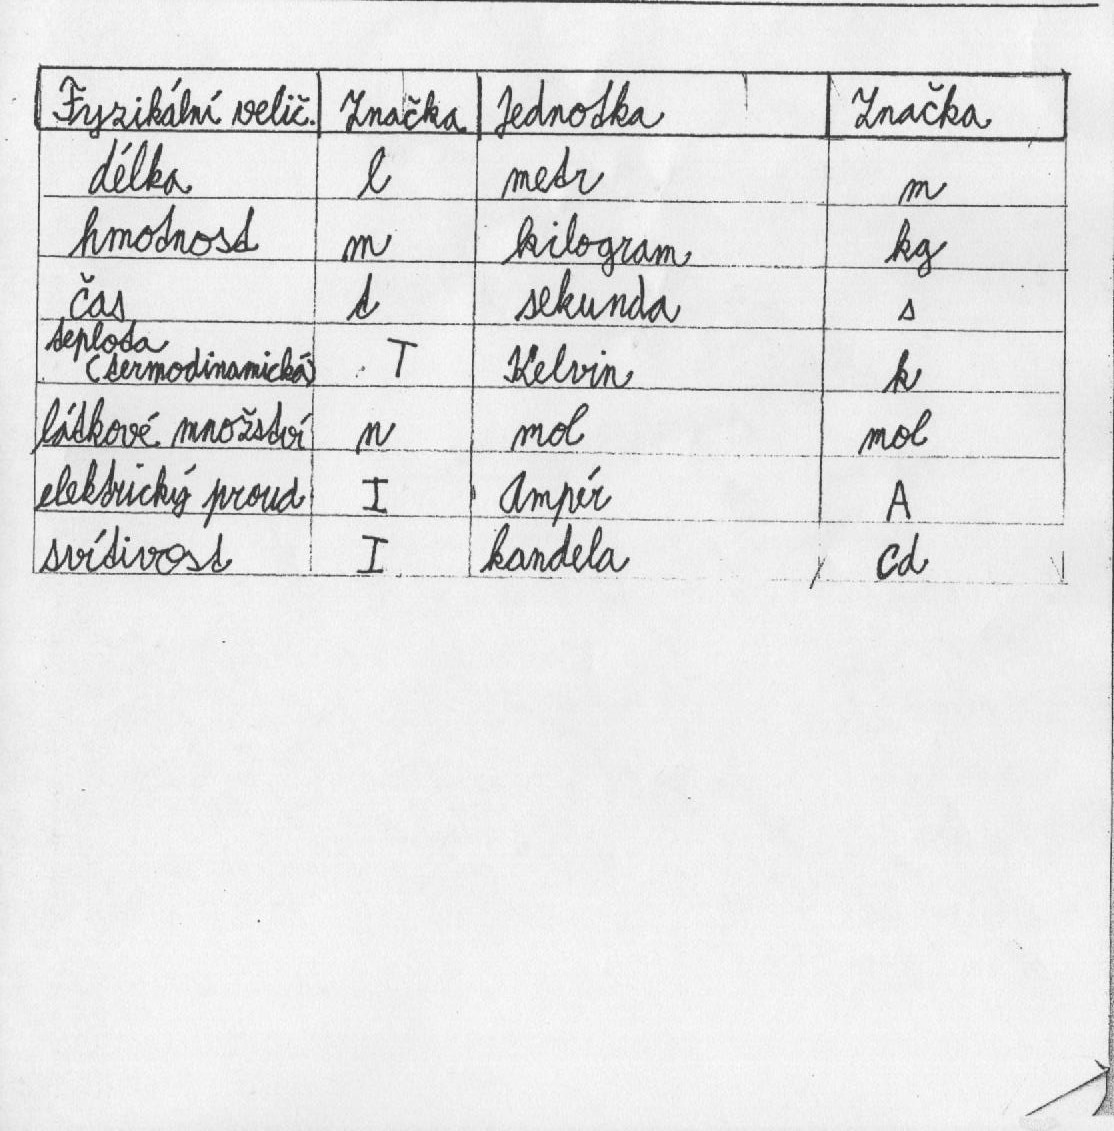 Fyzikální velič. Značka Jednotka Značka
délka l metr m
hmotnost m kilogram kg
čas t sekunda s
teplota
(termodinamická) T Kelvin k
látkové množství n mol mol
elektrický proud I Ampér A
svítivost I kandela cd